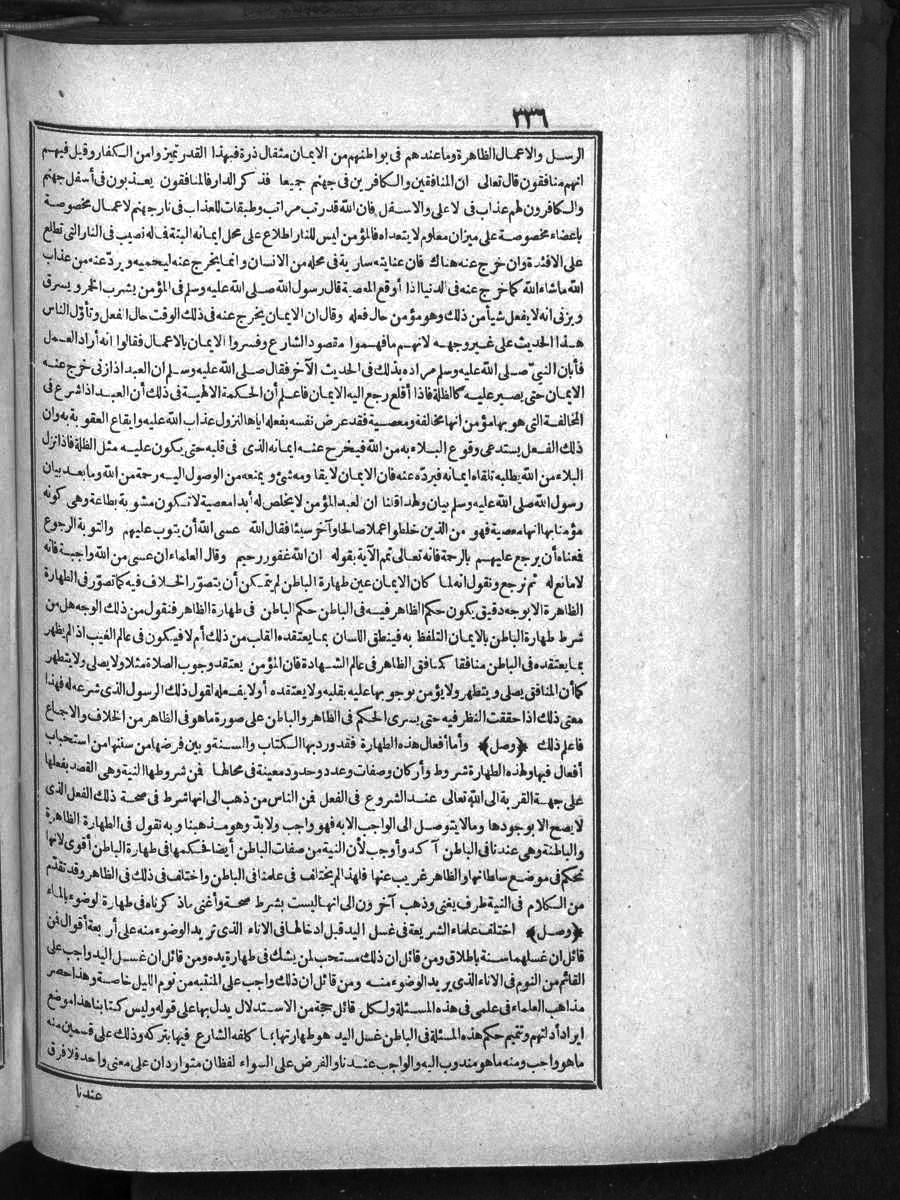 ٣٣٦
الرسل والاعمال الظاهرة وما عندهم فى بواطنهم من الايمان مثقال ذرة فبهذا القدر تميزوا من الكفار وقيل فيهم
انهم منافقون قال تعالى ان المنافقين والكافرين فى جهنم جميعا فذكر الدار فالمنافقون يعذبون فى أسفل جهنم
والكافرون لهم عذاب فى الاعلى والاسفل فان الله قد رتب مراتب وطبقات للعذاب فى نار جهنم لاعمال مخصوصة
باعضاء مخصوصة على ميزان معلوم لا يتعداه فالمؤمن ليس للنار اطلاع على محل ايمانه البتة فما له نصيب فى النار التى تطلع
على الافئدة وان خرج عنه هناك فان عنايته سارية فى محله من الانسان وانما يخرج عنه ليحميه ويردّ عنه من عذاب
الله ما شاء الله كما خرج عنه فى الدنيا اذا أوقع المعصية قال رسول الله صلى الله عليه وسلم فى المؤمن يشرب الخمر ويسرق
ويزنى انه لا يفعل شيأ من ذلك وهو مؤمن حال فعله وقال ان الايمان يخرج عنه فى ذلك الوقت حال الفعل وتأوّل الناس
هذا الحديث على غير وجهه لانهم ما فهموا مقصود الشارع وفسروا الايمان بالاعمال فقالوا انه أراد العمل
فأبان النبىّ صلى الله عليه وسلم مراده بذلك فى الحديث الآخر فقال صلى الله عليه وسلم ان العبد اذا زنى خرج عنه
الايمان حتى يصير عليه كالظلة فاذا أقلع رجع اليه الايمان فاعلم أن الحكمة الالهية فى ذلك أن العبد اذا شرع فى
المخالفة التى هو بها مؤمن انها مخالفة ومعصية فقد عرض نفسه بفعله اياها لنزول عذاب الله عليه وايقاع العقوبة به وان
ذلك الفعل يستدعى وقوع البلاء به من الله فيخرج عنه ايمانه الذى فى قلبه حتى يكون عليه مثل الظلة فاذا نزل
البلاء من الله يطلبه تلقاه ايمانه فيردّه عنه فان الايمان لا يقاومه شئ ويمنعه من الوصول اليه رحمة من الله وما بعد بيان
رسول الله صلى الله عليه وسلم بيان ولهذا قلنا ان العبد المؤمن لا يخلص له أبدا معصية لا تكون مشوبة بطاعة وهى كونه
مؤمنا بها انها معصية فهو من الذين خلطوا عملا صالحا وآخر سيئا فقال الله عسى الله أن يتوب عليهم والتوبة الرجوع
فمعناه أن يرجع عليهم بالرحمة فانه تعالى تمم الآية بقوله ان الله غفور رحيم وقال العلماء ان عسى من الله واجبة فانه
لا مانع له ثم نرجع ونقول انه لما كان الايمان عين طهارة الباطن لم يتمكن أن يتصوّر الخلاف فيه كما تصوّر فى الطهارة
الظاهرة الا بوجه دقيق يكون حكم الظاهر فيه فى الباطن حكم الباطن فى طهارة الظاهر فنقول من ذلك الوجه هل من
شرط طهارة الباطن بالايمان التلفظ به فينطق اللسان بما يعتقده القلب من ذلك أم لا فيكون فى عالم الغيب اذا لم يظهر
بما يعتقده فى الباطن منافقا كمنافق الظاهر فى عالم الشهادة فان المؤمن يعتقد وجوب الصلاة مثلا ولا يصلى ولا يتطهر
كما أن المنافق يصلى ويتطهر ولا يؤمن بوجوبها عليه بقلبه ولا يعتقده أولا يفعله لقول ذلك الرسول الذى شرعه له فهذا
معنى ذلك اذا حققت النظر فيه حتى يسرى الحكم فى الظاهر والباطن على صورة ما هو فى الظاهر من الخلاف والاجماع
فاعلم ذلك ﴿وصل﴾ وأما أفعال هذه الطهارة فقد ورد بها الكتاب والسنة وبين فرضها من سنتها من استحباب
أفعال فيها ولهذه الطهارة شروط وأركان وصفات وعدد وحدود معينة فى محالها فمن شروطها النية وهى القصد بفعلها
على جهة القربة الى الله تعالى عند الشروع فى الفعل فمن الناس من ذهب الى انها شرط فى صحة ذلك الفعل الذى
لا يصح الا بوجودها وما لا يتوصل الى الواجب الا به فهو واجب ولا بدّ وهو مذهبنا وبه نقول فى الطهارة الظاهرة
والباطنة وهى عندنا فى الباطن آكد وأوجب لأن النية من صفات الباطن أيضا فحكمها فى طهارة الباطن أقوى لانها
تحكم فى موضع سلطانها والظاهر غريب عنها فلهذا لم يختلف فى علمنا فى الباطن واختلف فى ذلك فى الظاهر وقد تقدّم
من الكلام فى النية طرف يغنى وذهب آخرون الى انها ليست بشرط صحة وأغنى ما ذكرناه فى طهارة الوضوء بالماء
﴿وصل﴾ اختلف علماء الشريعة فى غسل اليد قبل ادخالها فى الاناء الذى تريد الوضوء منه على أربعة أقوال فمن
قائل ان غسلها سنة باطلاق ومن قائل ان ذلك مستحب لمن يشك فى طهارة يده ومن قائل ان غسل اليد واجب على
القائم من النوم فى الاناء الذى يريد الوضوء منه ومن قائل ان ذلك واجب على المنتبه من نوم الليل خاصة وهذا حصر
مذاهب العلماء فى علمى فى هذه المسئلة ولكل قائل حجة من الاستدلال يدل بها على قوله وليس كتابنا هذا موضع
ايراد أدلتهم وتتميم حكم هذه المسئلة فى الباطن غسل اليد هو طهارتها بما كلفه الشارع فيها بتركه وذلك على قسمين منه
ما هو واجب ومنه ما هو مندوب اليه والواجب عندنا والفرض على السواء لفظان متواردان على معنى واحد فلا فرق
عندنا